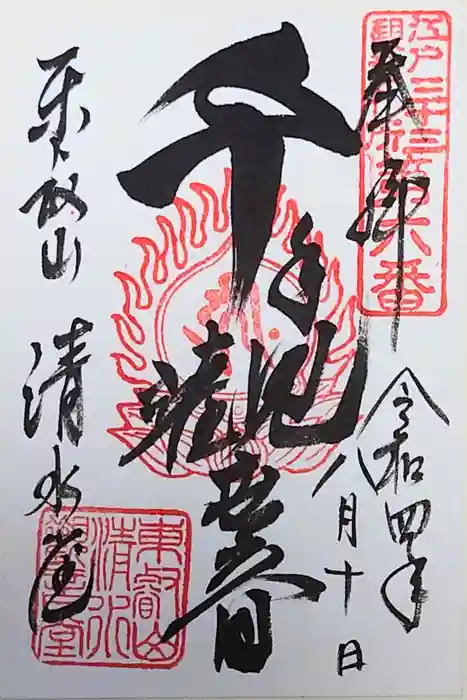 江戸三十三
観音札所
第六番
奉拝
令和四年
八月十日
千手観世音
東叡山
清水堂
東叡山
清水
観音堂